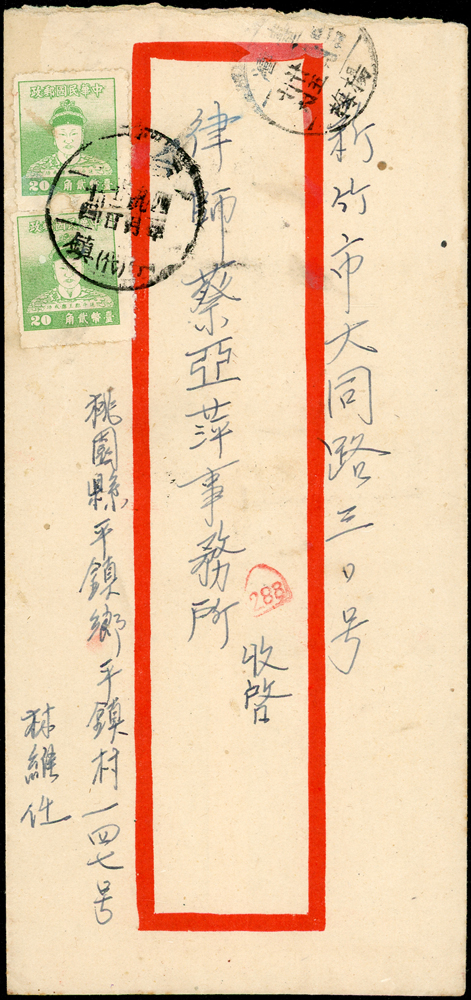 新竹市大同路三〇号
律師蔡亞萍事務所
收啓
桃園縣平鎮鄉平鎮村一四七号
林維仕
中華民國郵政
臺幣貳角 20
中華民國郵政
臺幣貳角 20
288
平鎮
(代)